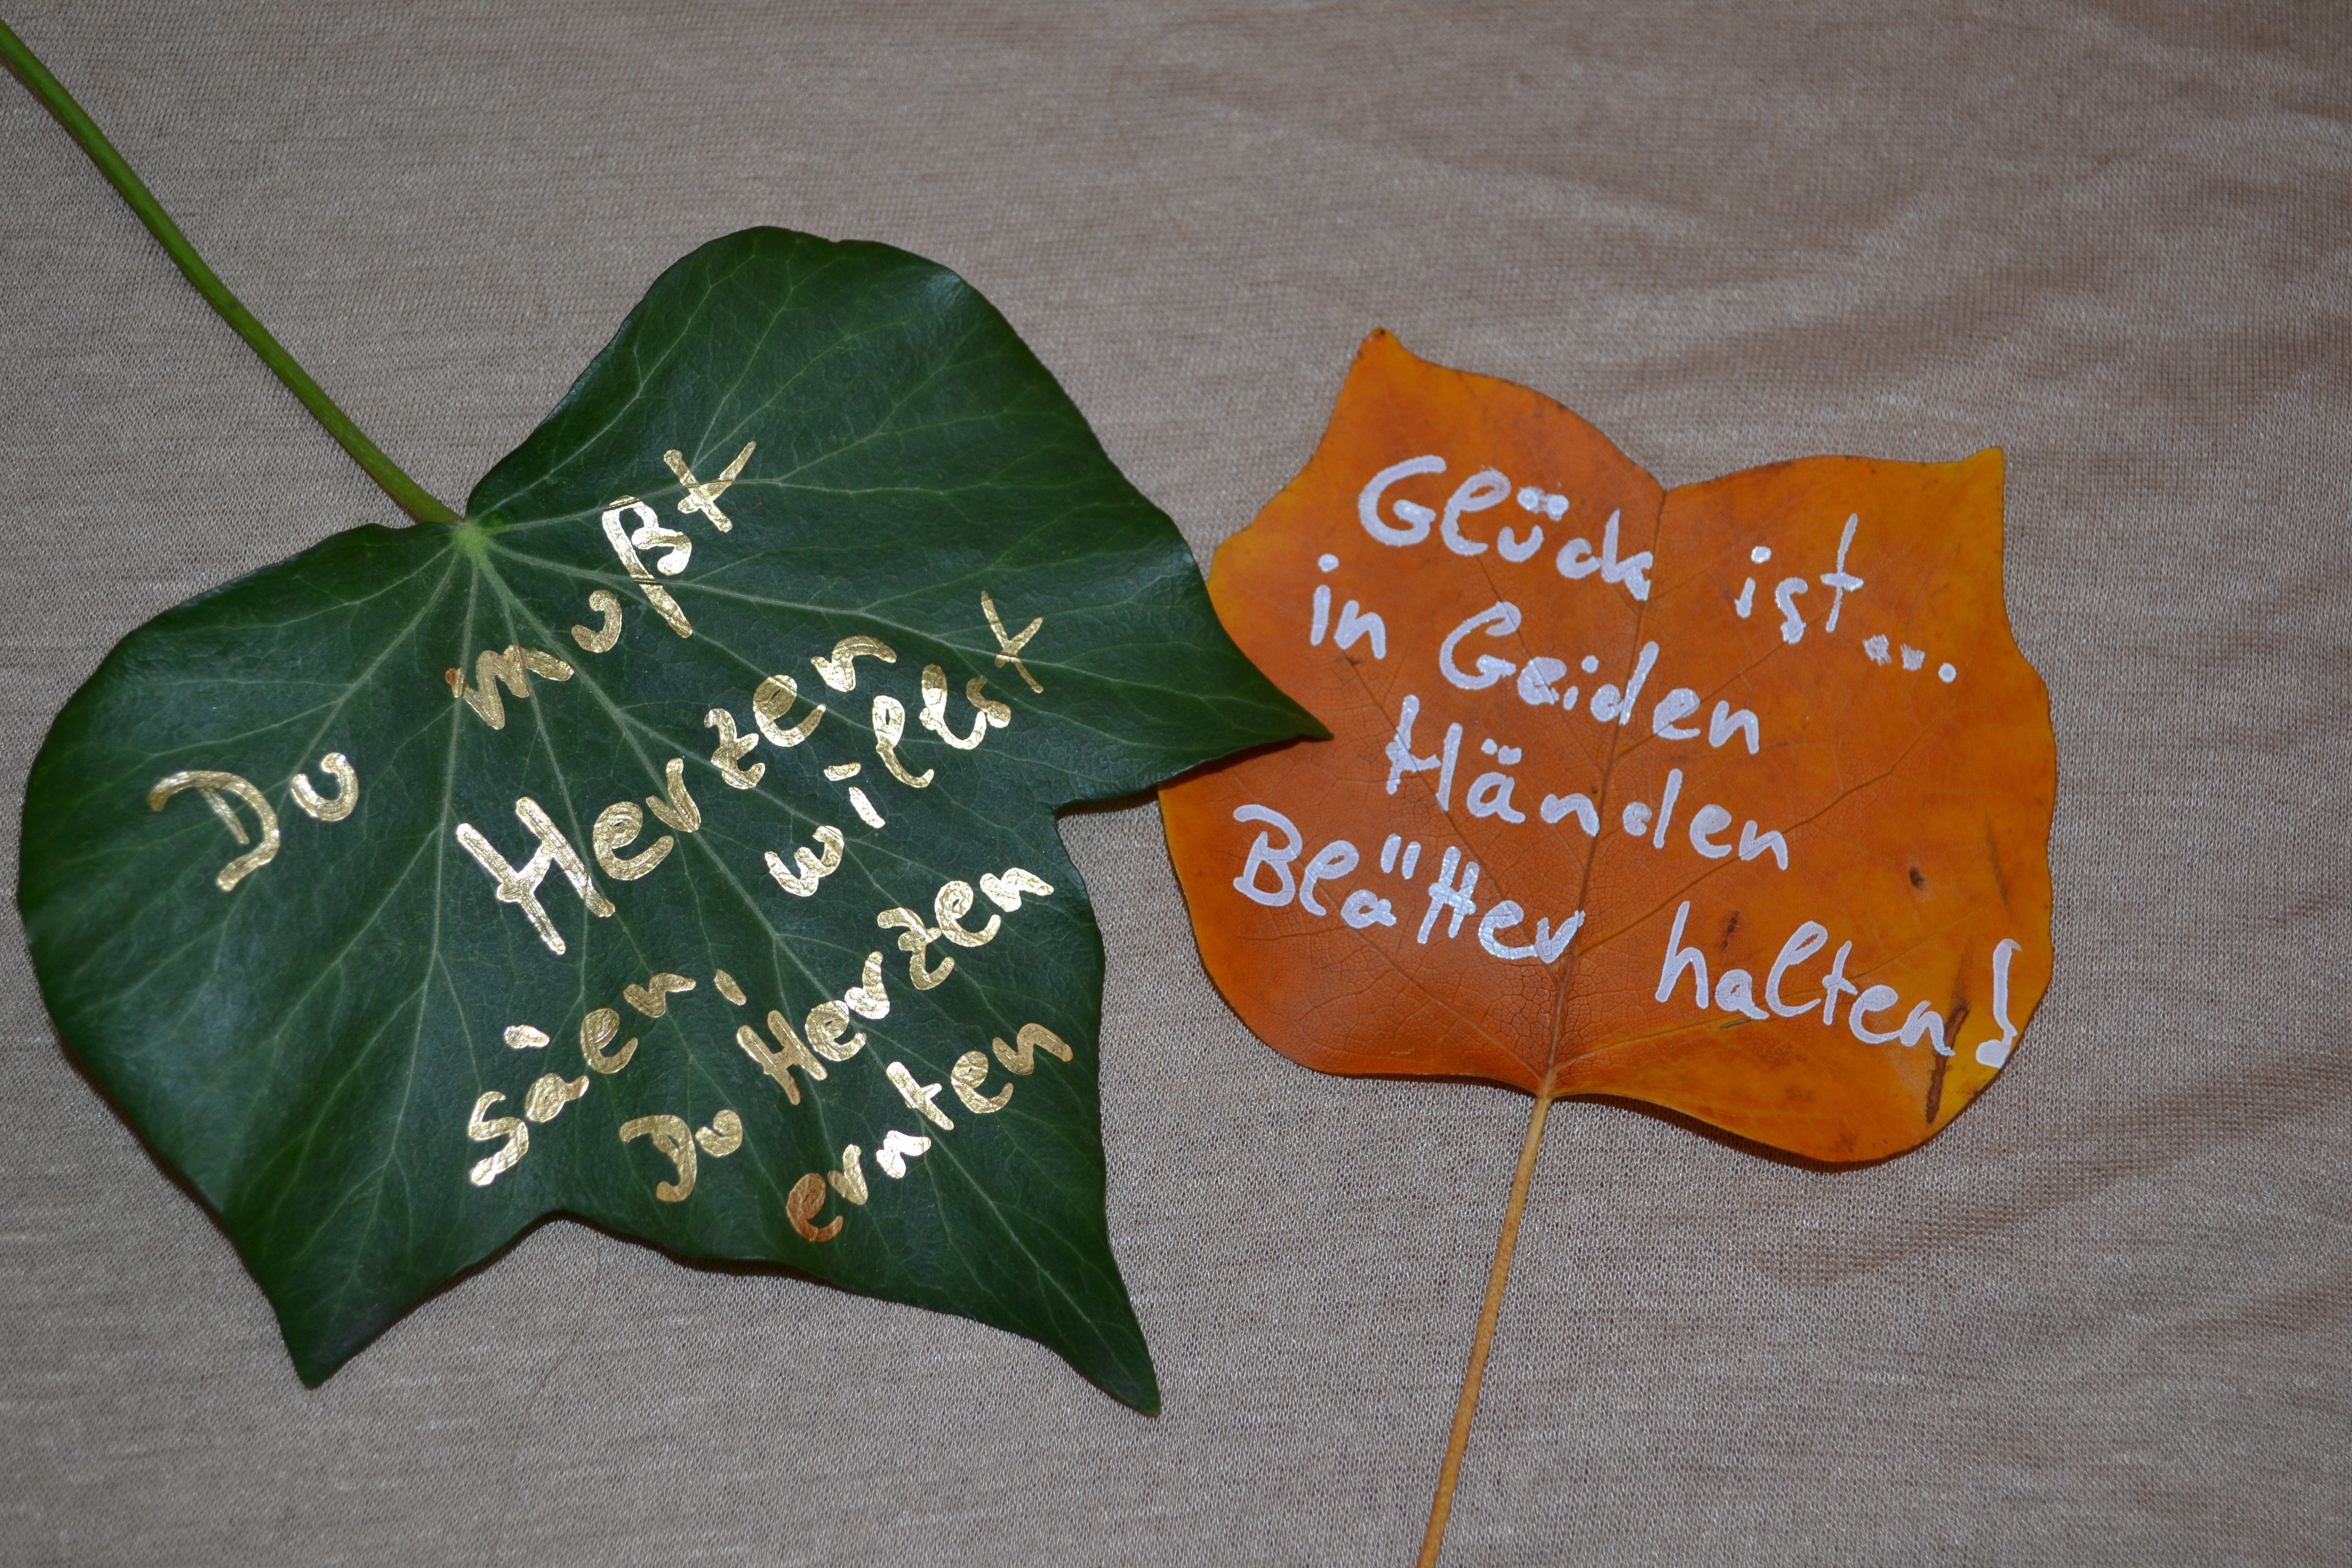 Du mußt
Herzen
säen, willst
Du Herzen
ernten
Glück ist...
in Geiden
Händen
Blätter halten!